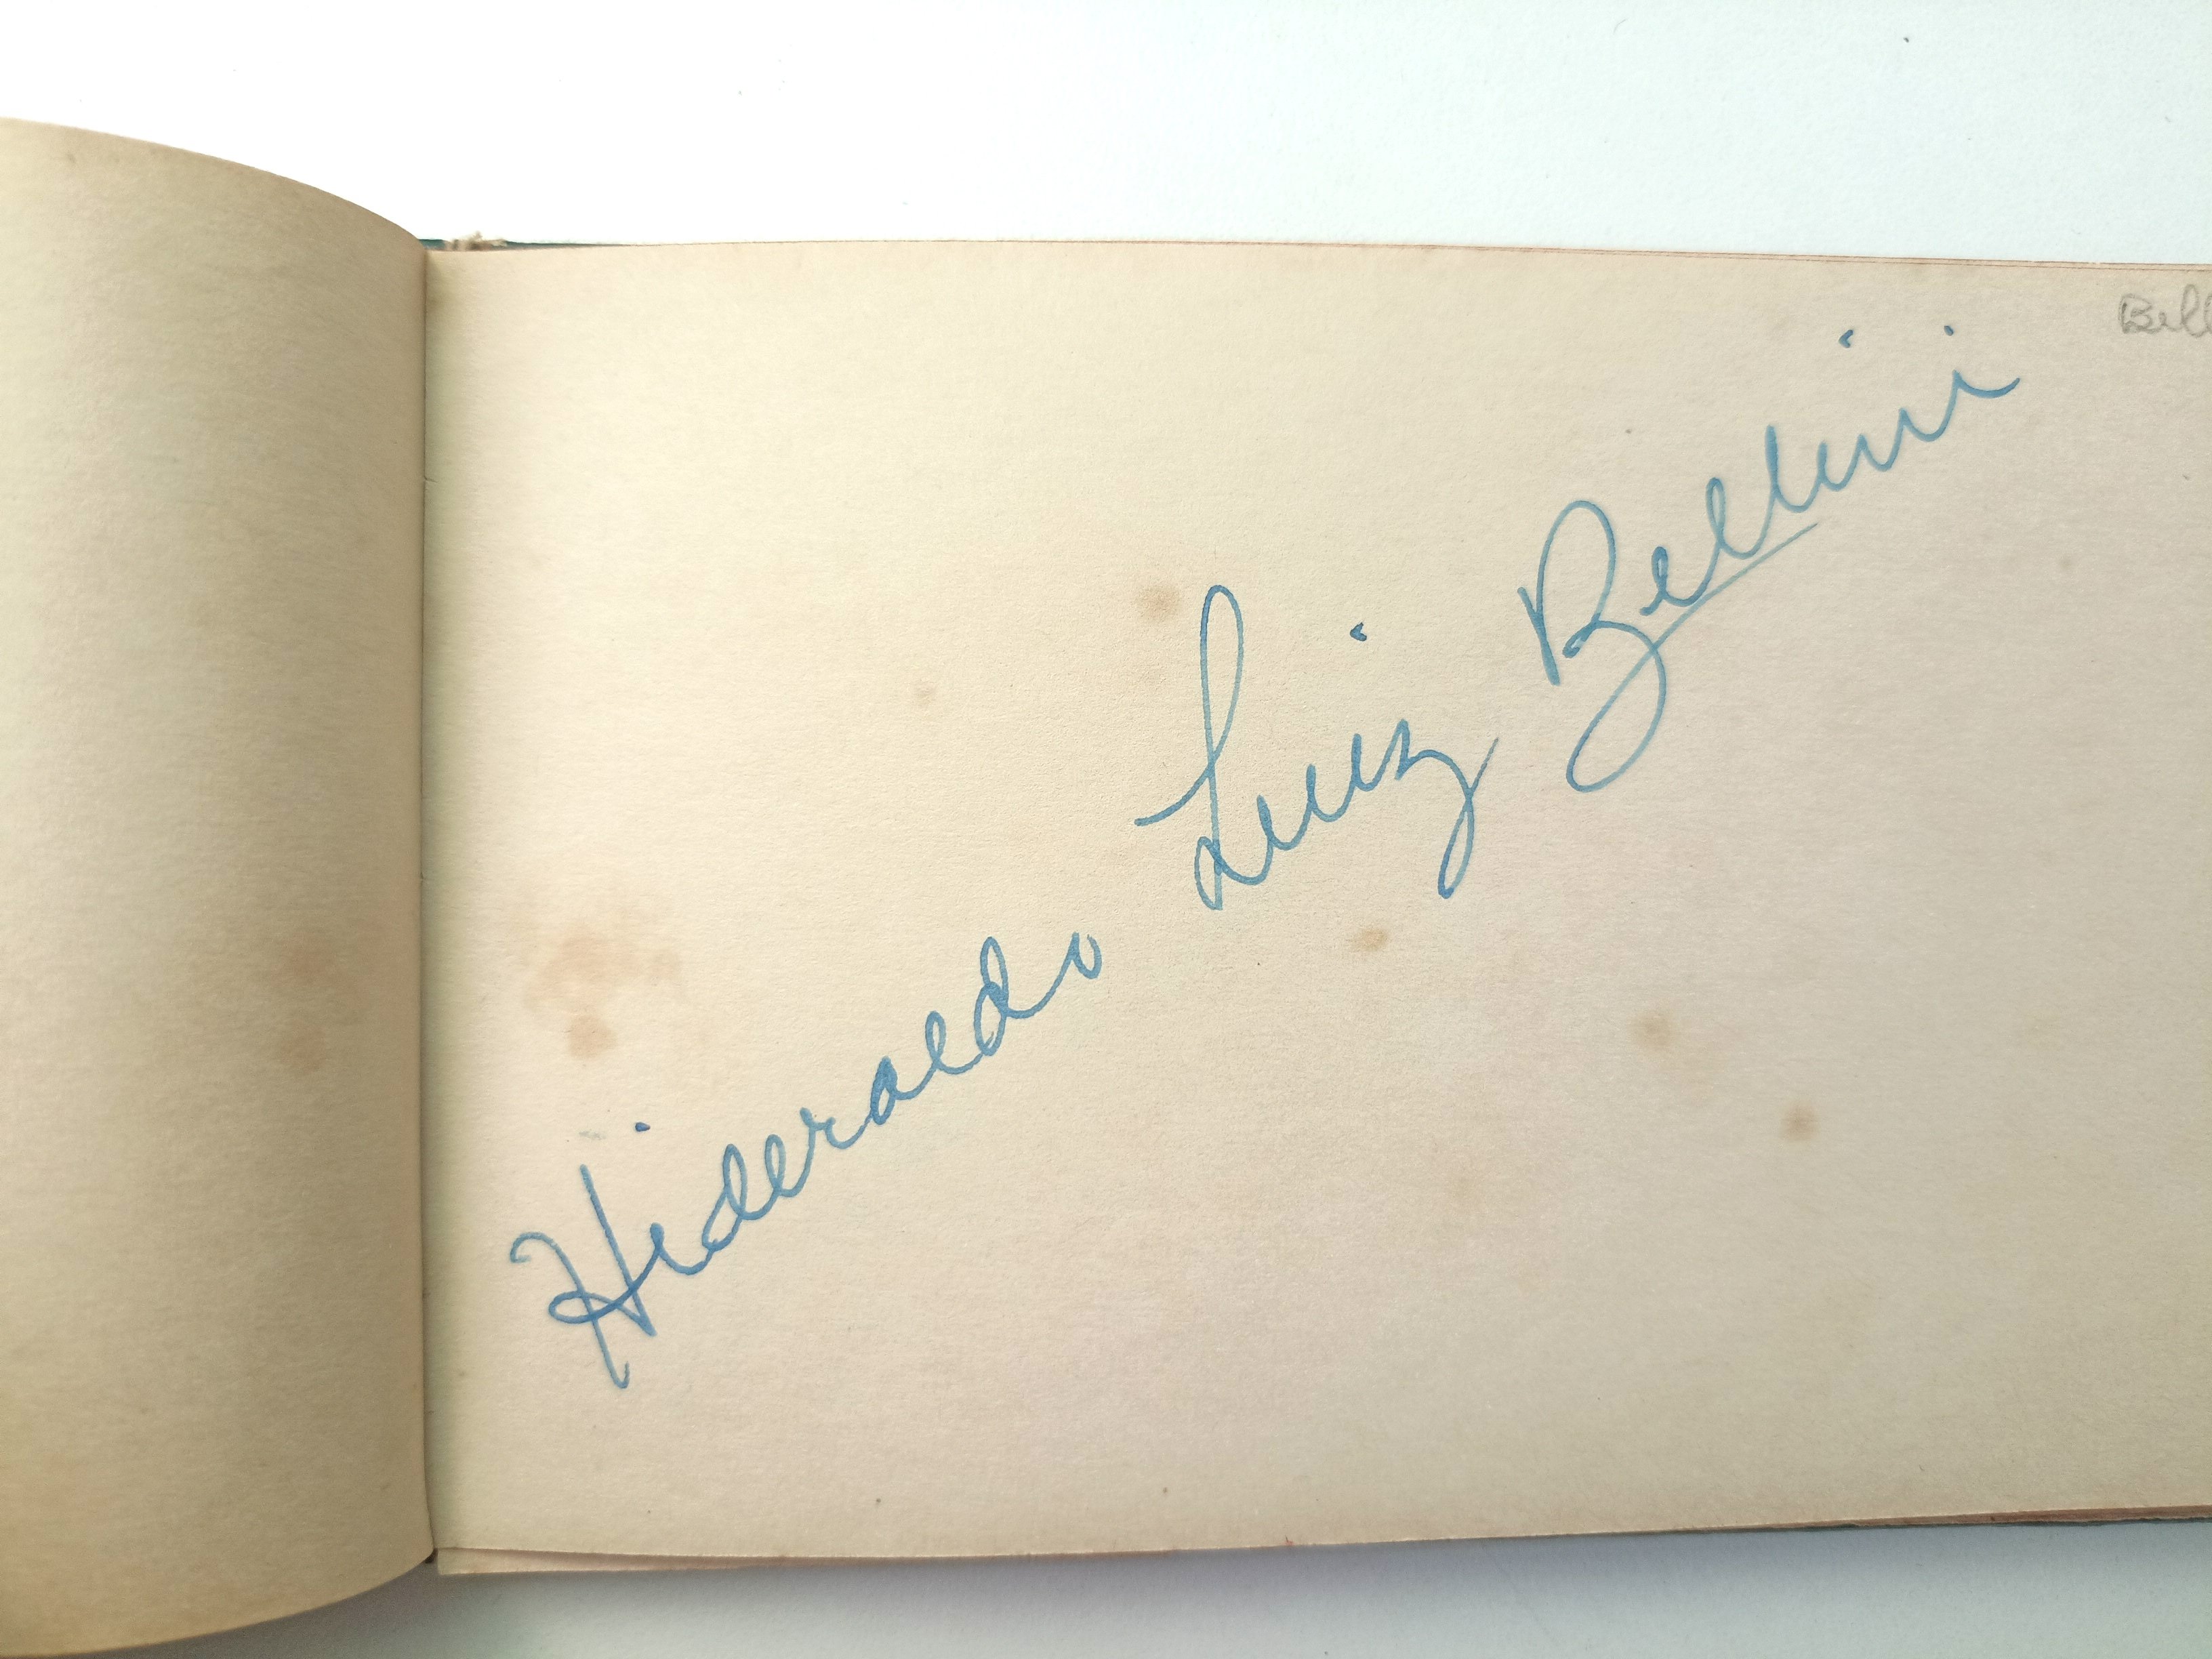 Bell
Hideraldo Luiz Bellini